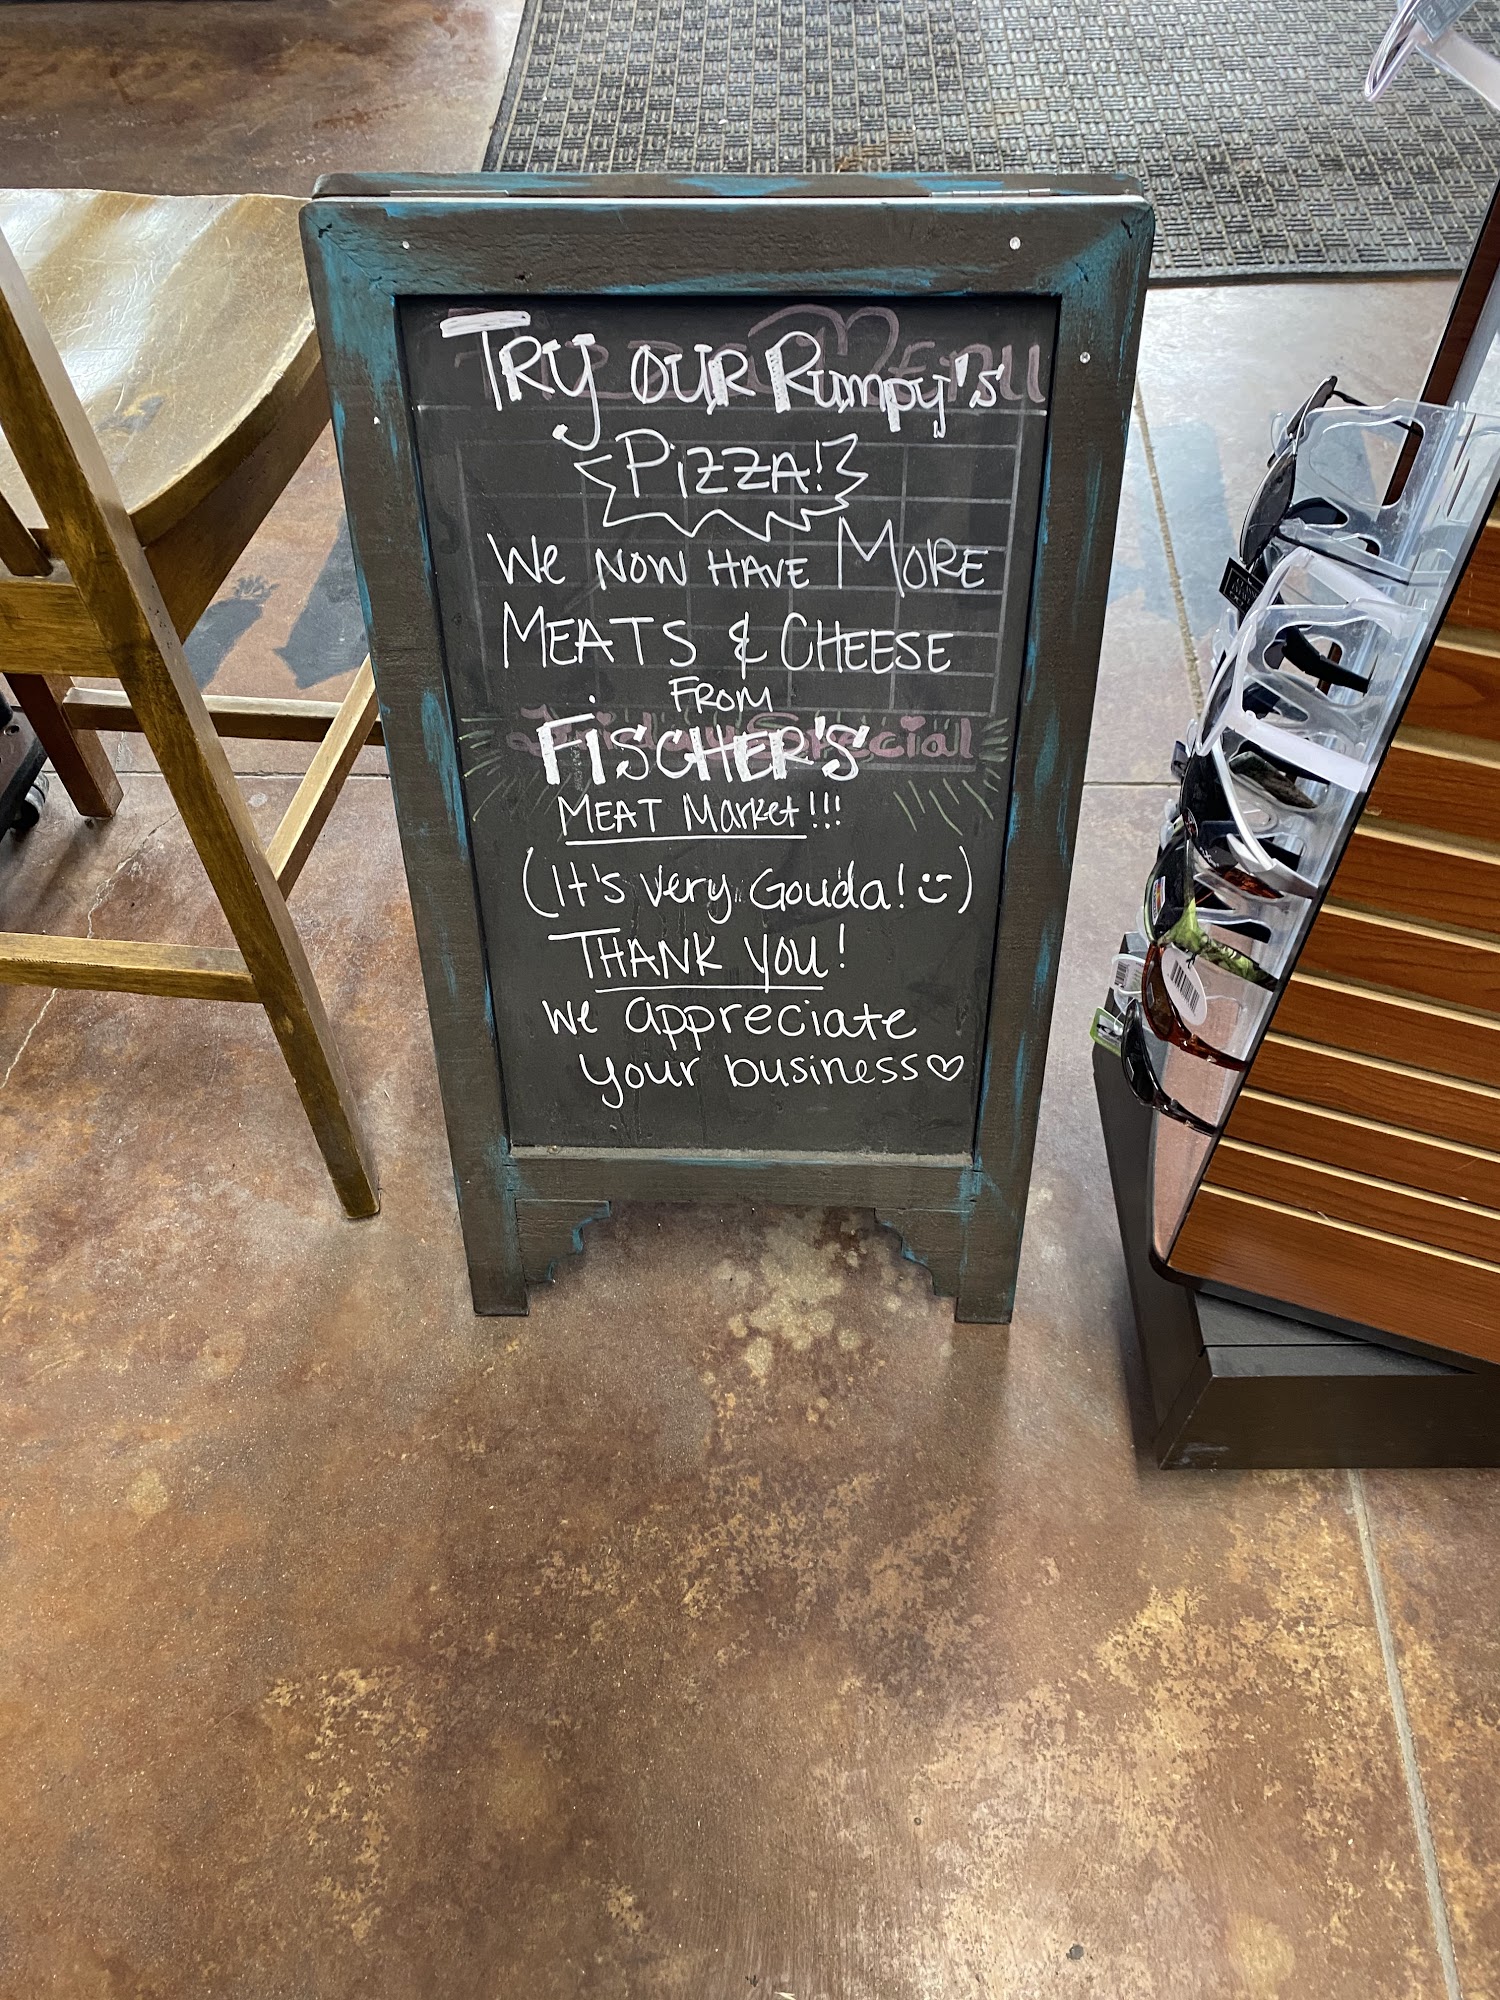 TRY OUR Rumpy's
PiZZA!
We NOW HAVE MORE
MEATS & CHEESE
FROM
FiSCHER'S
MEAT Market!!!
(It's very Gouda! :))
THANK YOU!
We appreciate
your business ♡
Menu
Friday Special